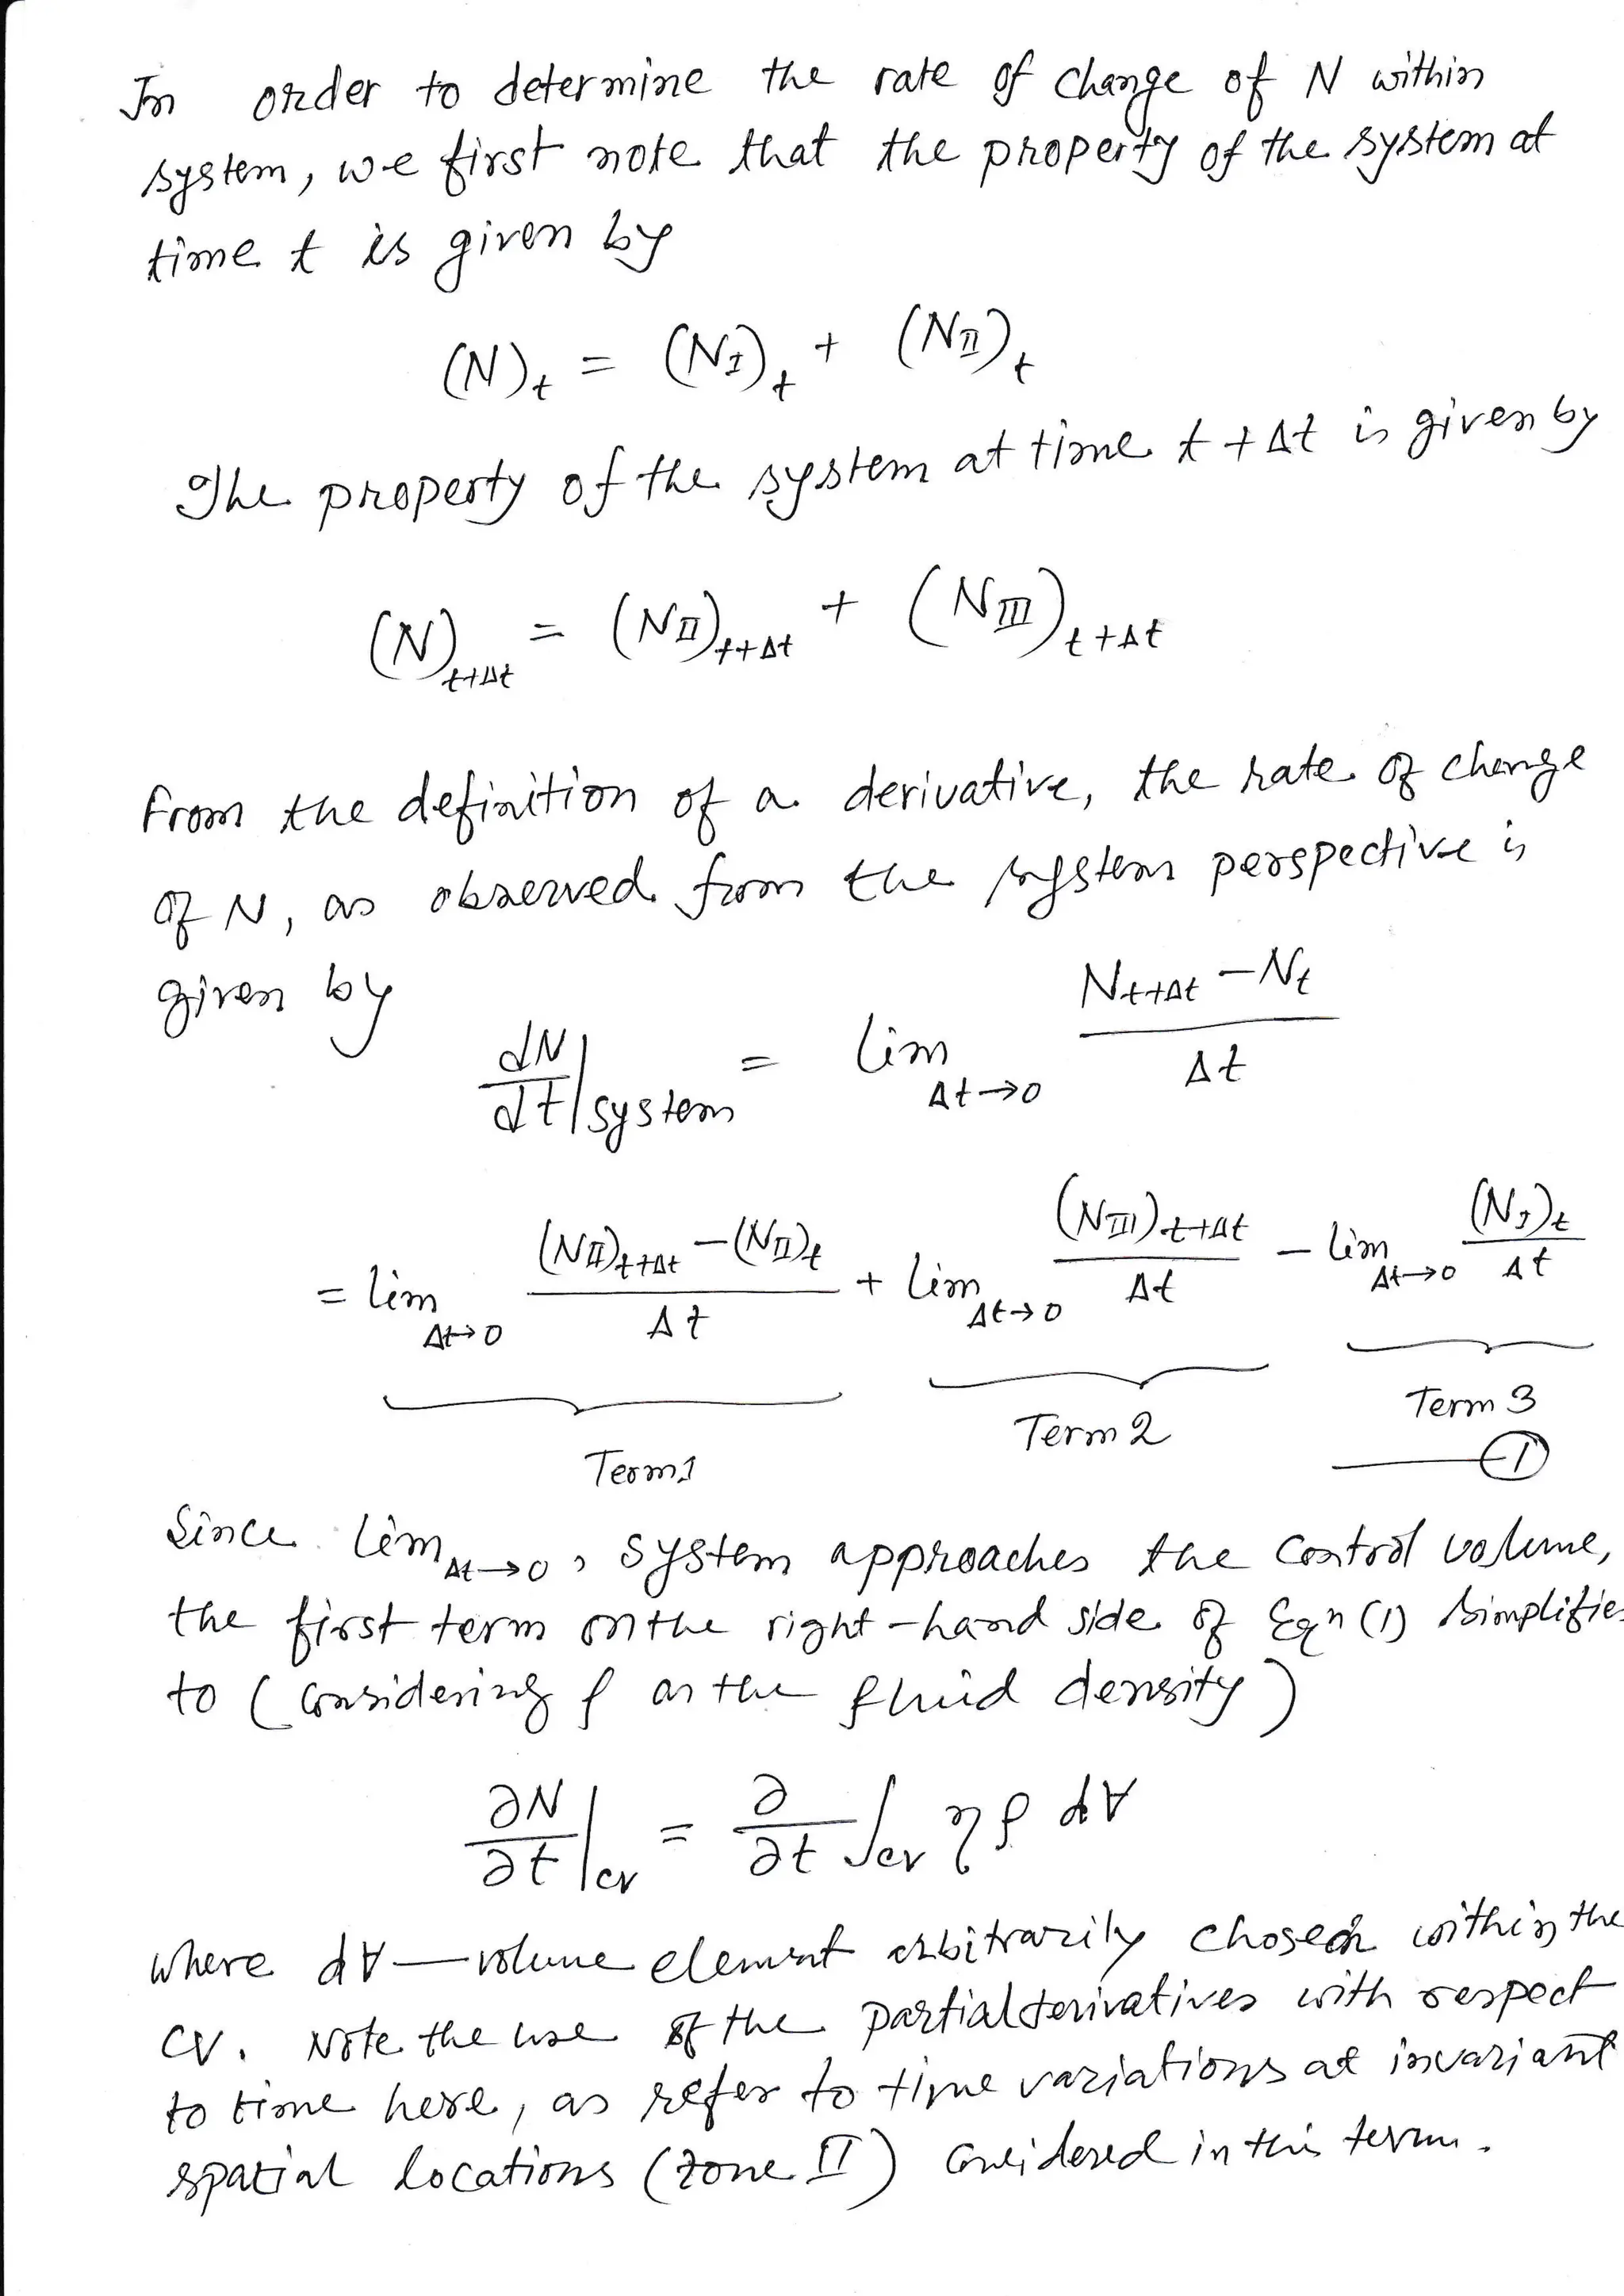 In order to determine the rate of change of N within
system, we first note that the property of the system at
time t is given by
(N)_t = (N_I)_t + (N_II)_t
The property of the system at time t + Δt is given by
(N)_{t+Δt} = (N_II)_{t+Δt} + (N_III)_{t+Δt}
From the definition of a derivative, the rate of change
of N, as observed from the system perspective is
given by
dN/dt|_system = lim_{Δt→0} (N_{t+Δt} − N_t)/Δt
= lim_{Δt→0} ((N_II)_{t+Δt} − (N_II)_t)/Δt + lim_{Δt→0} (N_III)_{t+Δt}/Δt − lim_{Δt→0} (N_I)_t/Δt
Term 1 Term 2 Term 3
— (1)
Since lim_{Δt→0}, system approaches the control volume,
the first term on the right-hand side of Eqn (1) simplifies
to (considering ρ as the fluid density)
∂N/∂t|_cv = ∂/∂t ∫_cv η ρ dV
where dV — volume element arbitrarily chosen within the
CV. Note the use of the partial derivatives with respect
to time here, as refer to time variations at invariant
spatial locations (zone II) considered in this term.